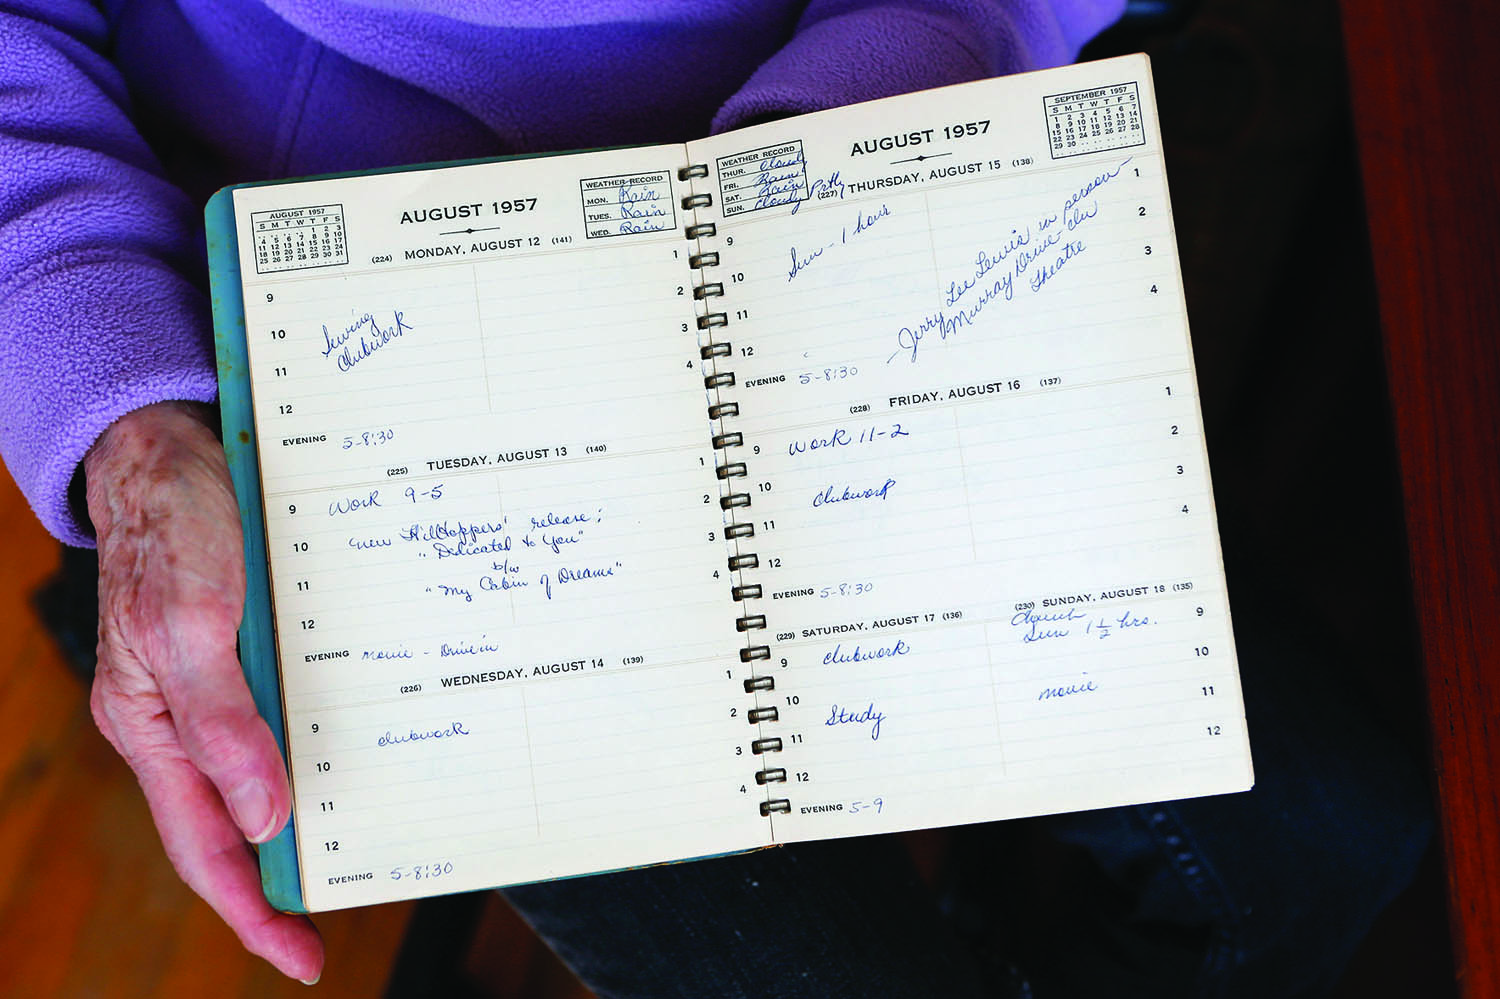 AUGUST 1957
S M T W T F S
1 2 3
4 5 6 7 8 9 10
11 12 13 14 15 16 17
18 19 20 21 22 23 24
25 26 27 28 29 30 31
AUGUST 1957
WEATHER RECORD
MON. Rain
TUES. Rain
WED. Rain
(224) MONDAY, AUGUST 12 (141)
9
10
11
12
1
2
3
4
Sewing
Clubwork
EVENING 5-8:30
(225) TUESDAY, AUGUST 13 (140)
9 Work 9-5
10
11
12
1
2
3
4
new Hilltoppers' release:
"Dedicated to You"
b/w
"My Cabin of Dreams"
EVENING movie - Drive in
(226) WEDNESDAY, AUGUST 14 (139)
9
10
11
12
1
2
3
4
clubwork
EVENING 5-8:30
WEATHER RECORD
THUR. Cloudy
FRI. Rain
SAT. Rain
SUN. Cloudy Prtly
AUGUST 1957
SEPTEMBER 1957
S M T W T F S
1 2 3 4 5 6 7
8 9 10 11 12 13 14
15 16 17 18 19 20 21
22 23 24 25 26 27 28
29 30
(227) THURSDAY, AUGUST 15 (138)
9
10
11
12
1
2
3
4
Sun - 1 hour
Jerry Lee Lewis in person
Murray Drive-in
Theatre
EVENING 5-8:30
(228) FRIDAY, AUGUST 16 (137)
9 Work 11-2
10 clubwork
11
12
1
2
3
4
EVENING 5-8:30
(229) SATURDAY, AUGUST 17 (136)
9 clubwork
10
Study
11
12
EVENING 5-9
(230) SUNDAY, AUGUST 18 (135)
Church
Sun 1 1/2 hrs.
movie
9
10
11
12